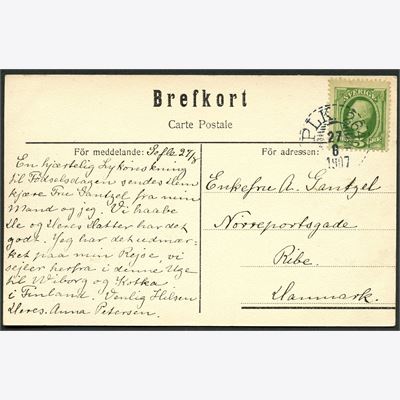 Brefkort
Carte Postale
SVERIGE
5 ÖRE
PLK
27
6
1907
För meddelande:
27/6
En hjærtelig Lykönskning
til Födselsdagen sendes Dem
kjære Fru Gantzel fra min
Mand og jeg. Vi haabe
De og Deres Datter har det
godt. Jeg har det udmær-
ket paa min Rejse, vi
sejler herfra i denne Uge
til Wiborg og Kotka
i Finland. Venlig Hilsen
Deres. Anna Petersen.
För adressen:
Enkefru A. Gantzel
Nörreportsgade
Ribe.
Danmark.